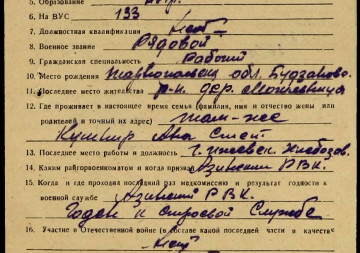 5. Образование
6. На ВУС 133
7. Должностная квалификация нет
8. Военное звание Рядовой
9. Гражданская специальность Рабочий
10. Место рождения Тарнопольск обл. Будзаново
11. Последнее место жительства р-н. дер.
12. Где проживает в настоящее время семья (фамилия, имя и отчество жены или
родителей и точный их адрес) там-же
Кушнир
13. Последнее место работы и должность г. Ижевск.
14. Каким райгорвоенкоматом и когда призван Азинский РВК.
15. Когда и где проходил последний раз медкомиссию и результат годности к
военной службе Азинский РВК.
Годен к строевой службе
16. Участие в Отечественной войне (в составе какой последней части и в качестве
Нет